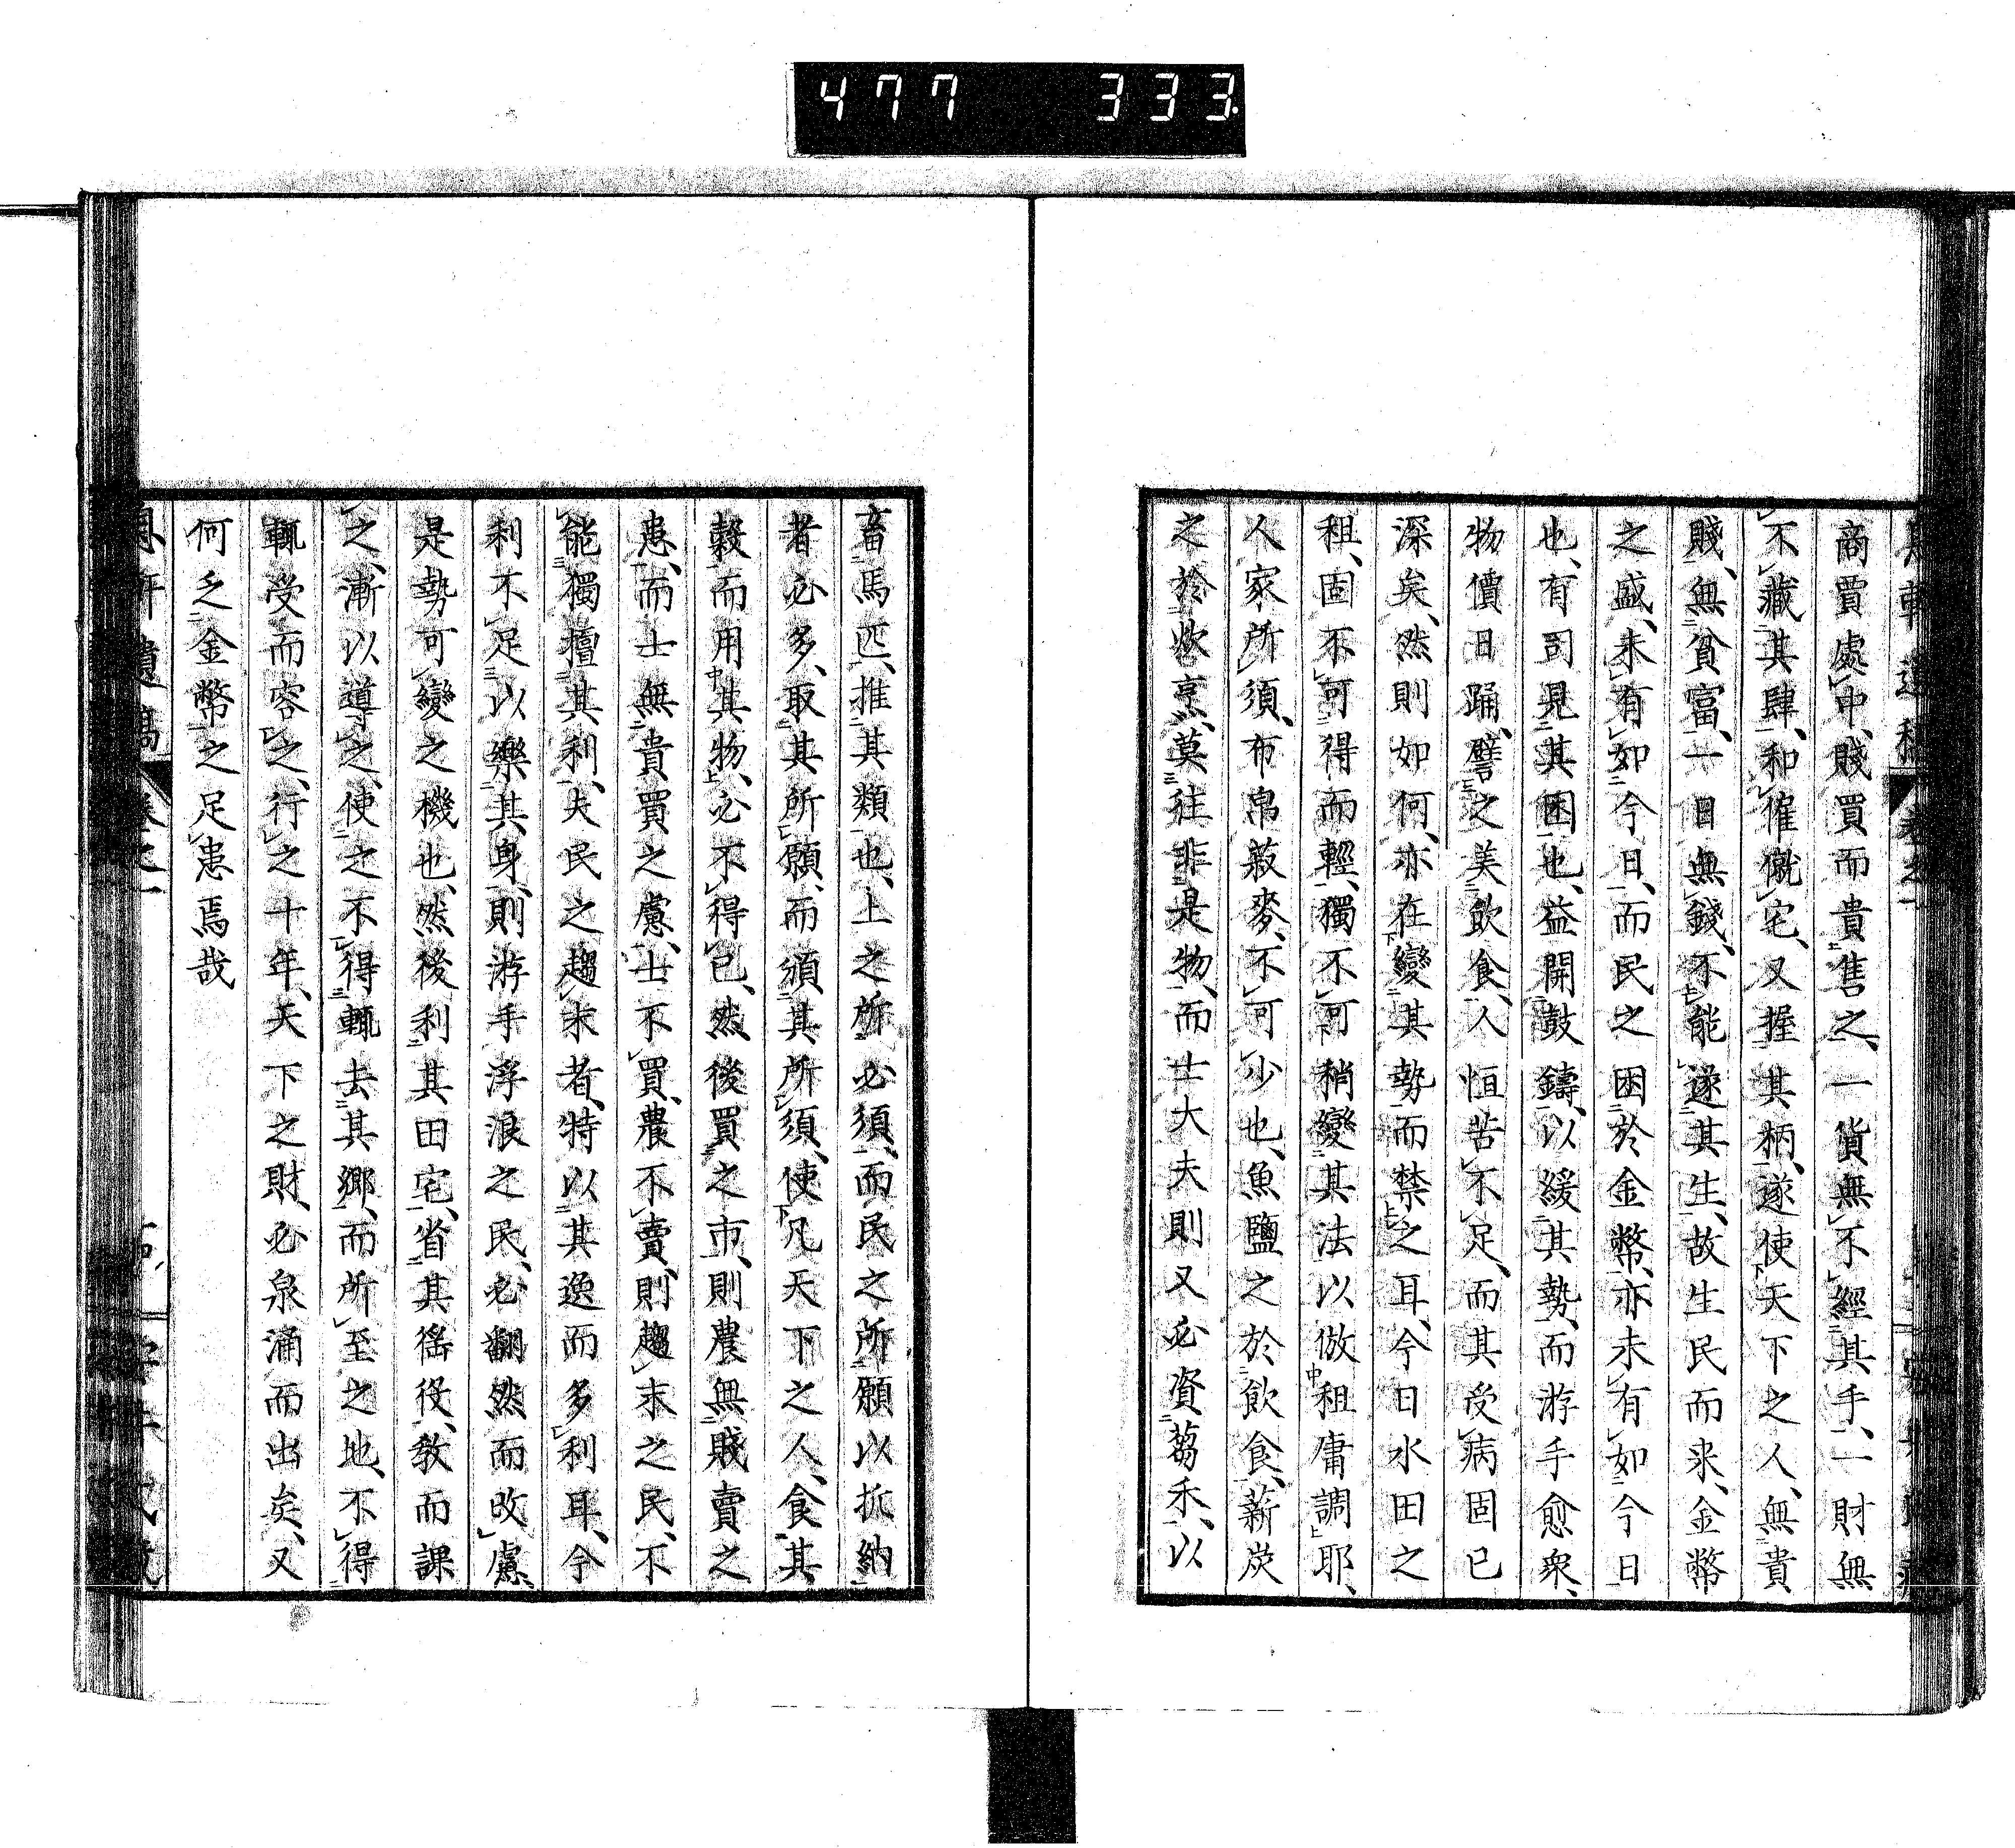 477 333
商賈處中、賤買而貴售之、一貨無不經其手、一財無
不藏其肆、和傕僦宅、又握其柄、遂使天下之人、無貴
賤、無貧富、一日無錢、不能遂其生、故生民而來、金幣
之盛、未有如今日、而民之困於金幣、亦未有如今日
也、有司見其困也、益開鼓鑄、以緩其勢、而游手愈衆、
物價日踊、譬之美飲食、人恒苦不足、而其受病固已
深矣、然則如何、亦在變其勢而禁之耳、今日水田之
租、固不可得而輕、獨不可稍變其法以倣租庸調耶、
人家所須、布帛菽麥、不可少也、魚鹽之於飲食、薪炭
之於炊烹、莫往非是物、而士大夫則又必資芻禾、以
畜馬匹、推其類也、上之所必須、而民之所願以折納
者必多、取其所願、而頒其所須、使凡天下之人、食其
穀而用其物、必不得已、然後買之市、則農無賤賣之
患、而士無貴買之慮、士不買、農不賣、則趨末之民、不
能獨擅其利、夫民之趨末者、特以其逸而多利耳、今
利不足以樂其身、則游手浮浪之民、必翻然而改慮、
是勢可變之機也、然後利其田宅、省其徭役、教而課
之、漸以導之、使之不得輒去其鄉、而所至之地、不得
輒受而容之、行之十年、天下之財、必泉涌而出矣、又
何乏金幣之足患焉哉